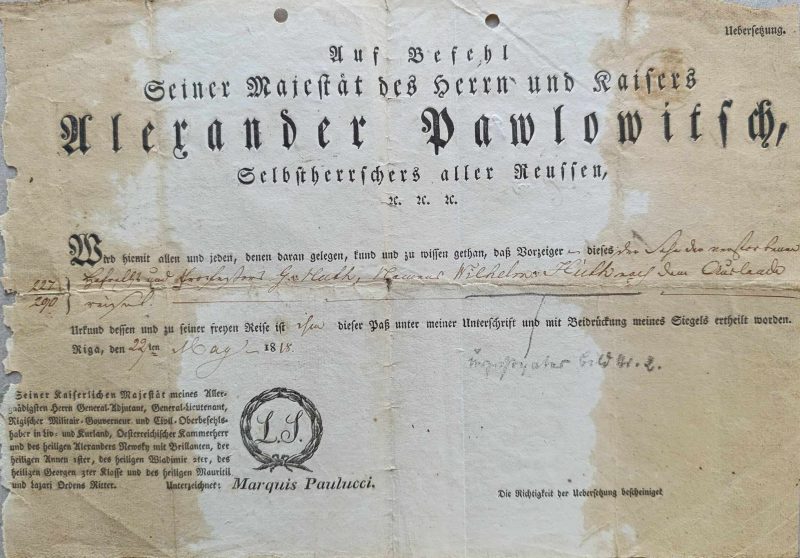 Uebersetzung.
Auf Befehl
Seiner Majestät des Herrn und Kaisers
Alexander Pawlowitsch,
Selbstherrschers aller Reussen,
ꝛc. ꝛc. ꝛc.
Wird hiemit allen und jeden, denen daran gelegen, kund und zu wissen gethan, daß Vorzeiger dieses der Sohn des verstorbenen
227
Hofraths und Namens Wilhelm Huth nach dem Auslande
290
reiset
Urkund dessen und zu seiner freyen Reise ist ihm dieser Paß unter meiner Unterschrift und mit Beidrückung meines Siegels ertheilt worden.
Riga, den 22ten May 1818.
Seiner Kaiserlichen Majestät meines Aller-
gnädigsten Herrn General-Adjutant, General-Lieutenant,
Rigischer Militair-Gouverneur und Civil-Oberbefehls-
haber in Liv- und Kurland, Oesterreichischer Kammerherr
und des heiligen Alexanders Newsky mit Brillanten, der
heiligen Annen 1ster, des heiligen Wladimir 2ter, des
heiligen Georgen 3ter Klasse und des heiligen Mauritii
und Lazari Ordens Ritter. Unterzeichnet:
L. S.
Marquis Paulucci.
Die Richtigkeit der Uebersetzung bescheiniget